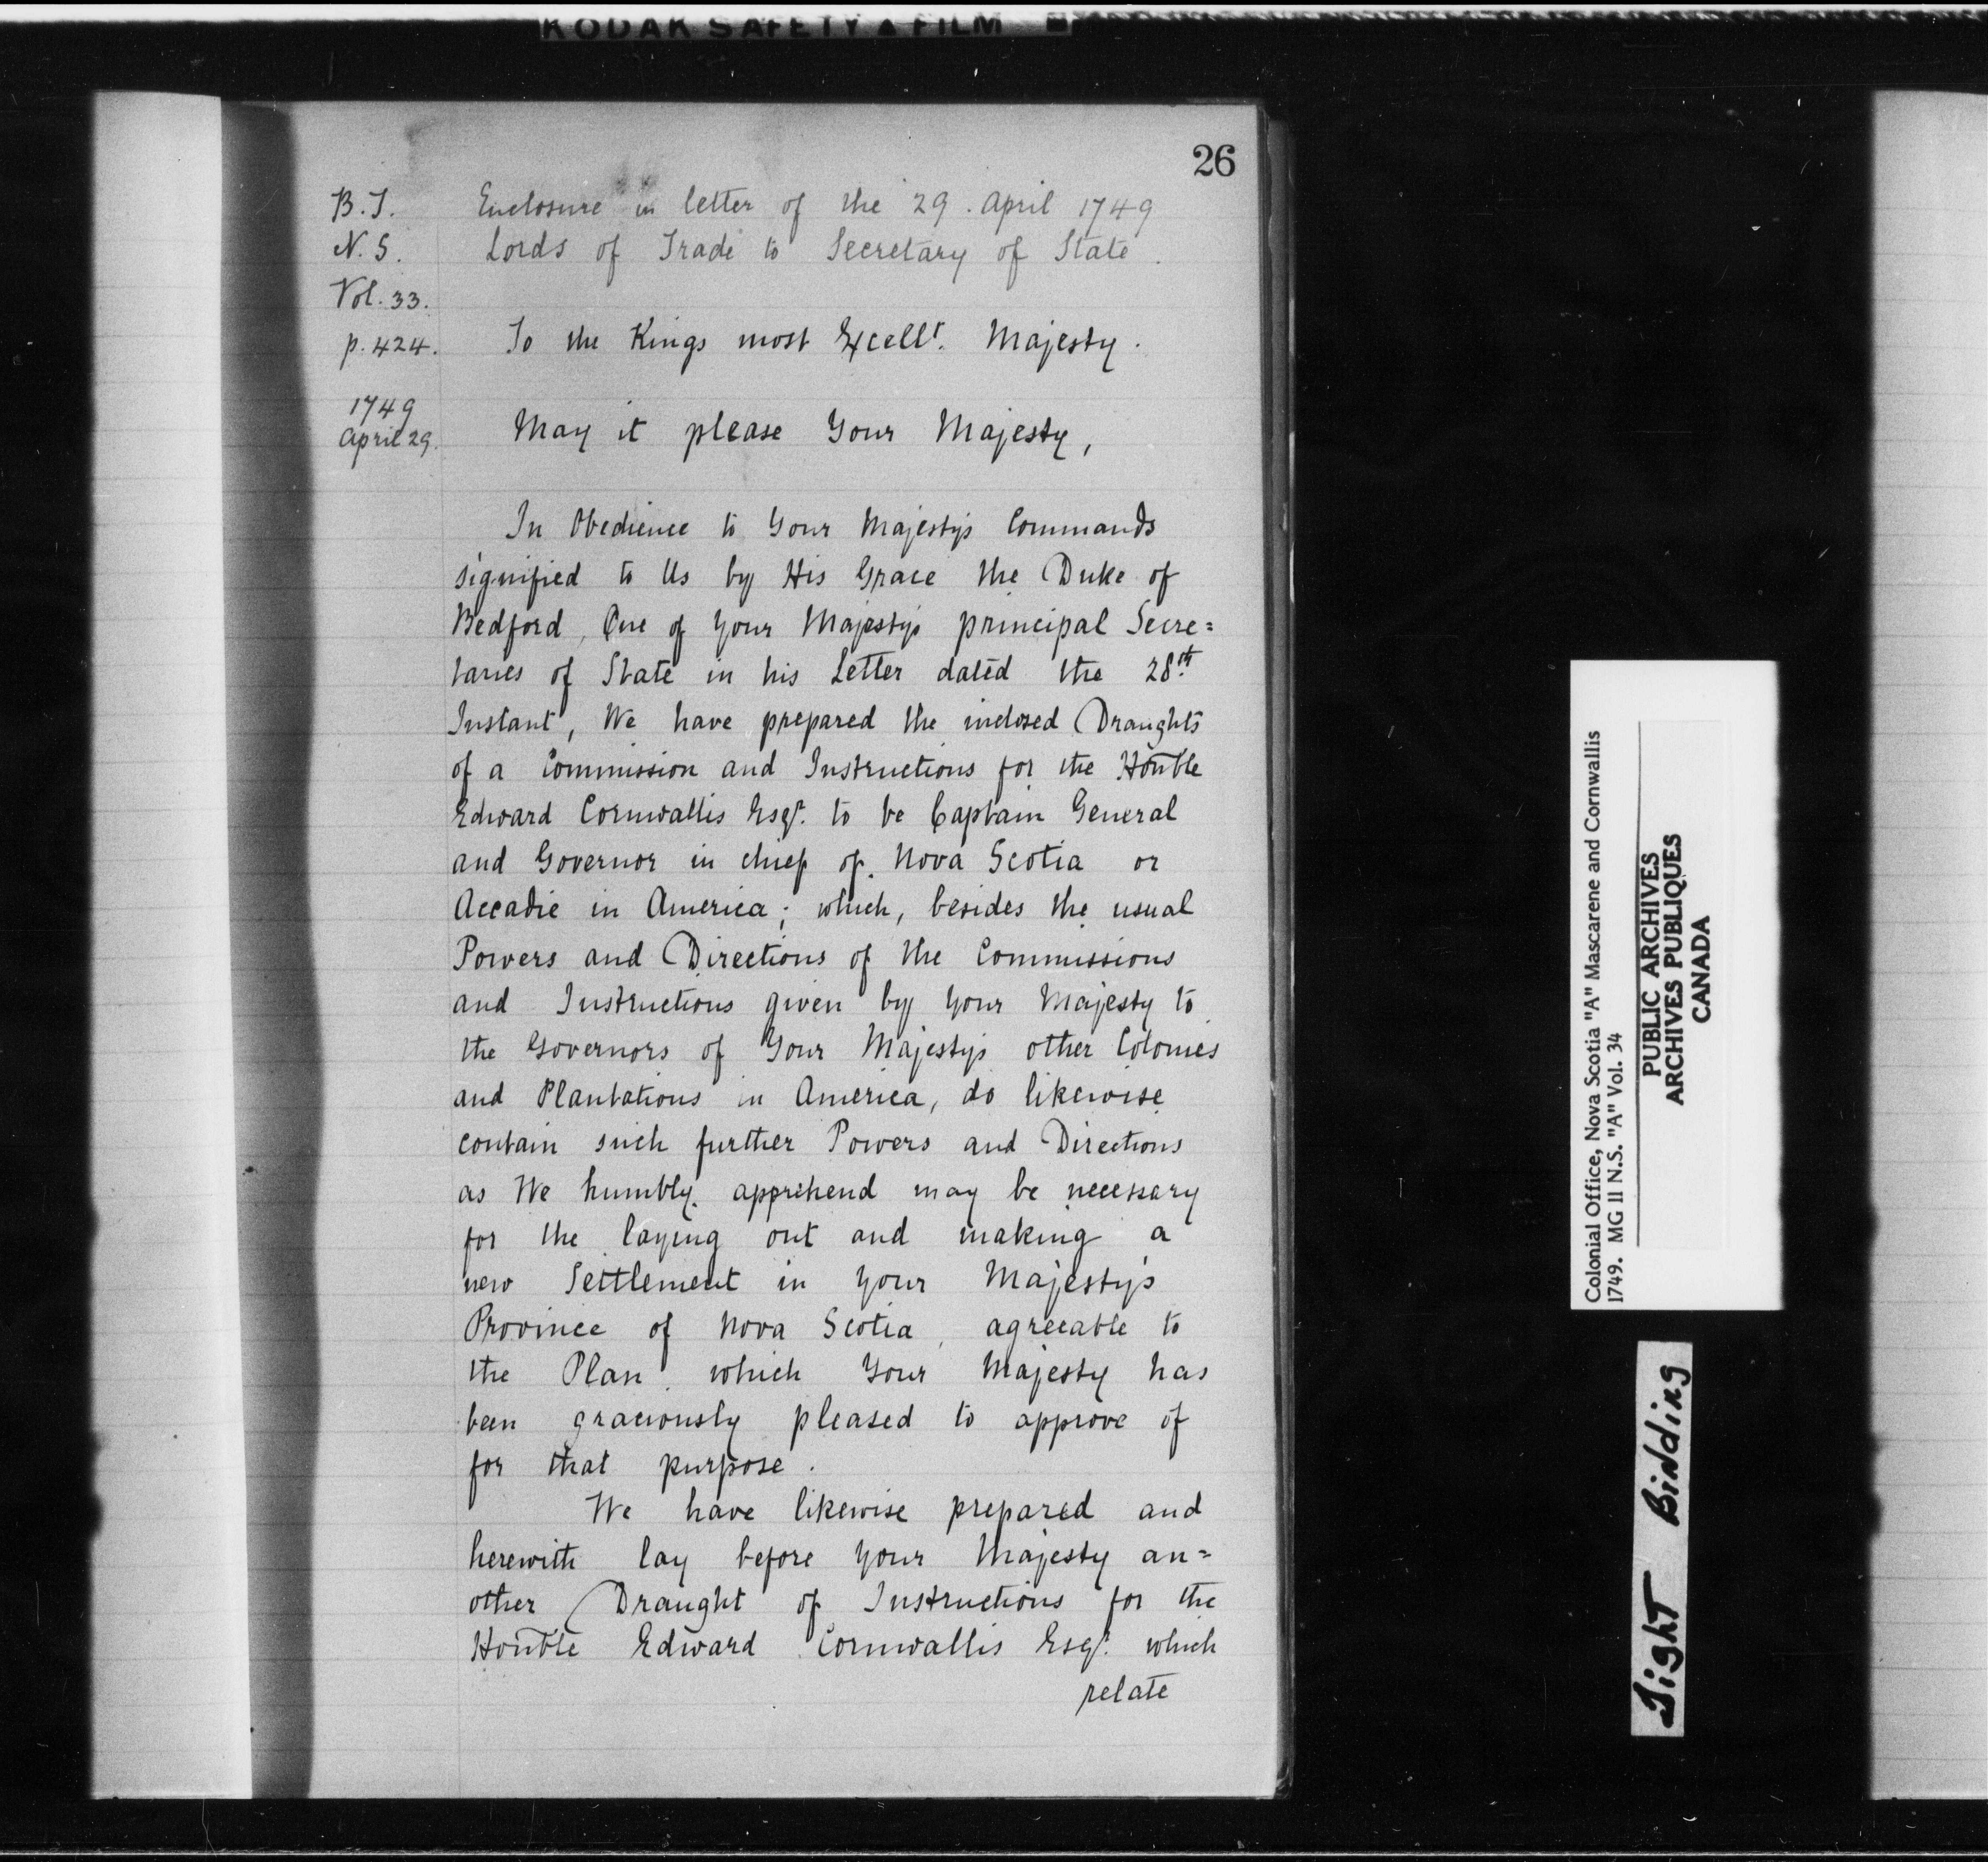 KODAK SAFETY ▲ FILM
26
B.T.
N.S.
Vol. 33.
p. 424.
1749
April 29.
Enclosure in letter of the 29. April 1749
Lords of Trade to Secretary of State.
To the Kings most Excellt. Majesty.
May it please Your Majesty,
In Obedience to Your Majestys Commands
signified to Us by His Grace the Duke of
Bedford, One of Your Majestys principal Secre=
taries of State in his Letter dated the 28th
Instant, We have prepared the inclosed Draughts
of a Commission and Instructions for the Honble
Edward Cornwallis Esqr. to be Captain General
and Governor in chief of Nova Scotia or
Accadie in America; which, besides the usual
Powers and Directions of the Commissions
and Instructions given by Your Majesty to
the Governors of Your Majestys other Colonies
and Plantations in America, do likewise
contain such further Powers and Directions
as We humbly apprehend may be necessary
for the laying out and making a
new Settlement in Your Majestys
Province of Nova Scotia, agreeable to
the Plan which Your Majesty has
been graciously pleased to approve of
for that purpose.
We have likewise prepared and
herewith lay before Your Majesty an=
other Draught of Instructions for the
Honble Edward Cornwallis Esqr. which
relate
Colonial Office, Nova Scotia "A" Mascarene and Cornwallis
1749. MG 11 N.S. "A" Vol. 34
PUBLIC ARCHIVES
ARCHIVES PUBLIQUES
CANADA
Tight Binding